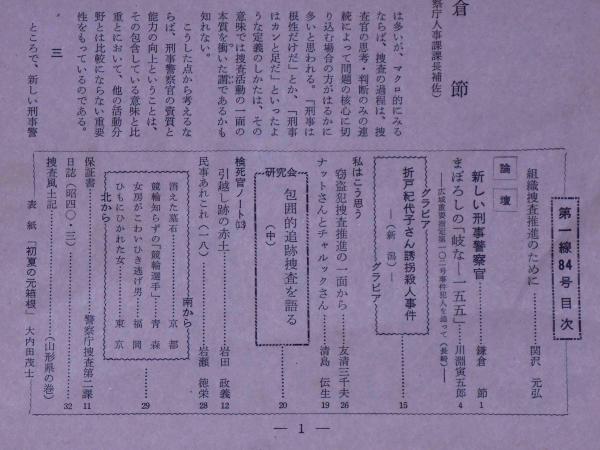 倉　節
察庁人事課課長補佐）
は多いが、マクロ的にみる
ならば、捜査の過程は、捜
査官の思考・判断のみの連
続によって問題の核心に切
り込む場合の方がはるかに
多いと思われる。「刑事は
根性だけだ」とか、「刑事
はカンと足だ」といったよ
うな定義のしかたは、その
意味では捜査活動の一面の
本質を衝いた謂であるかも
知れない。
こうした点から考えるな
らば、刑事警察官の資質と
能力の向上ということは、
その包含している意味と比
重とにおいて、他の活動分
野とは比較にならない重要
性をもっているのである。
三
ところで、新しい刑事警
第一線84号目次
組織捜査推進のために…………関沢　元弘
論壇
新しい刑事警察官…………鎌倉　節　1
まぼろしの「岐な―一五五」……川淵寅五郎　4
―広域重要指定第一〇二号事件犯人を追って（長崎）―
グラビア
折戸紀代子さん誘拐殺人事件
―（新潟）―
グラビア
15
私はこう思う
窃盗犯捜査推進の一面から……友清三千夫　26
ナットさんとチャルックさん……清島　伝生　19
研究会
包囲的追跡捜査を語る
（中）
20
検死官ノート⒀
引越し跡の赤土…………岩田　政義　12
民事あれこれ（一八）…………岩瀬　徳栄　28
南から
消えた墓石…………京都
競輪知らずの「競輪選手」……青森
女房がこわいひき逃げ男……福岡
ひもにひかれた女…………東京
北から
29
保証書…………警察庁捜査第二課　11
日誌（昭四〇・三）…………32
捜査風土記…………（山形県の巻）
表紙「初夏の元箱根」　大内田茂士
― 1 ―